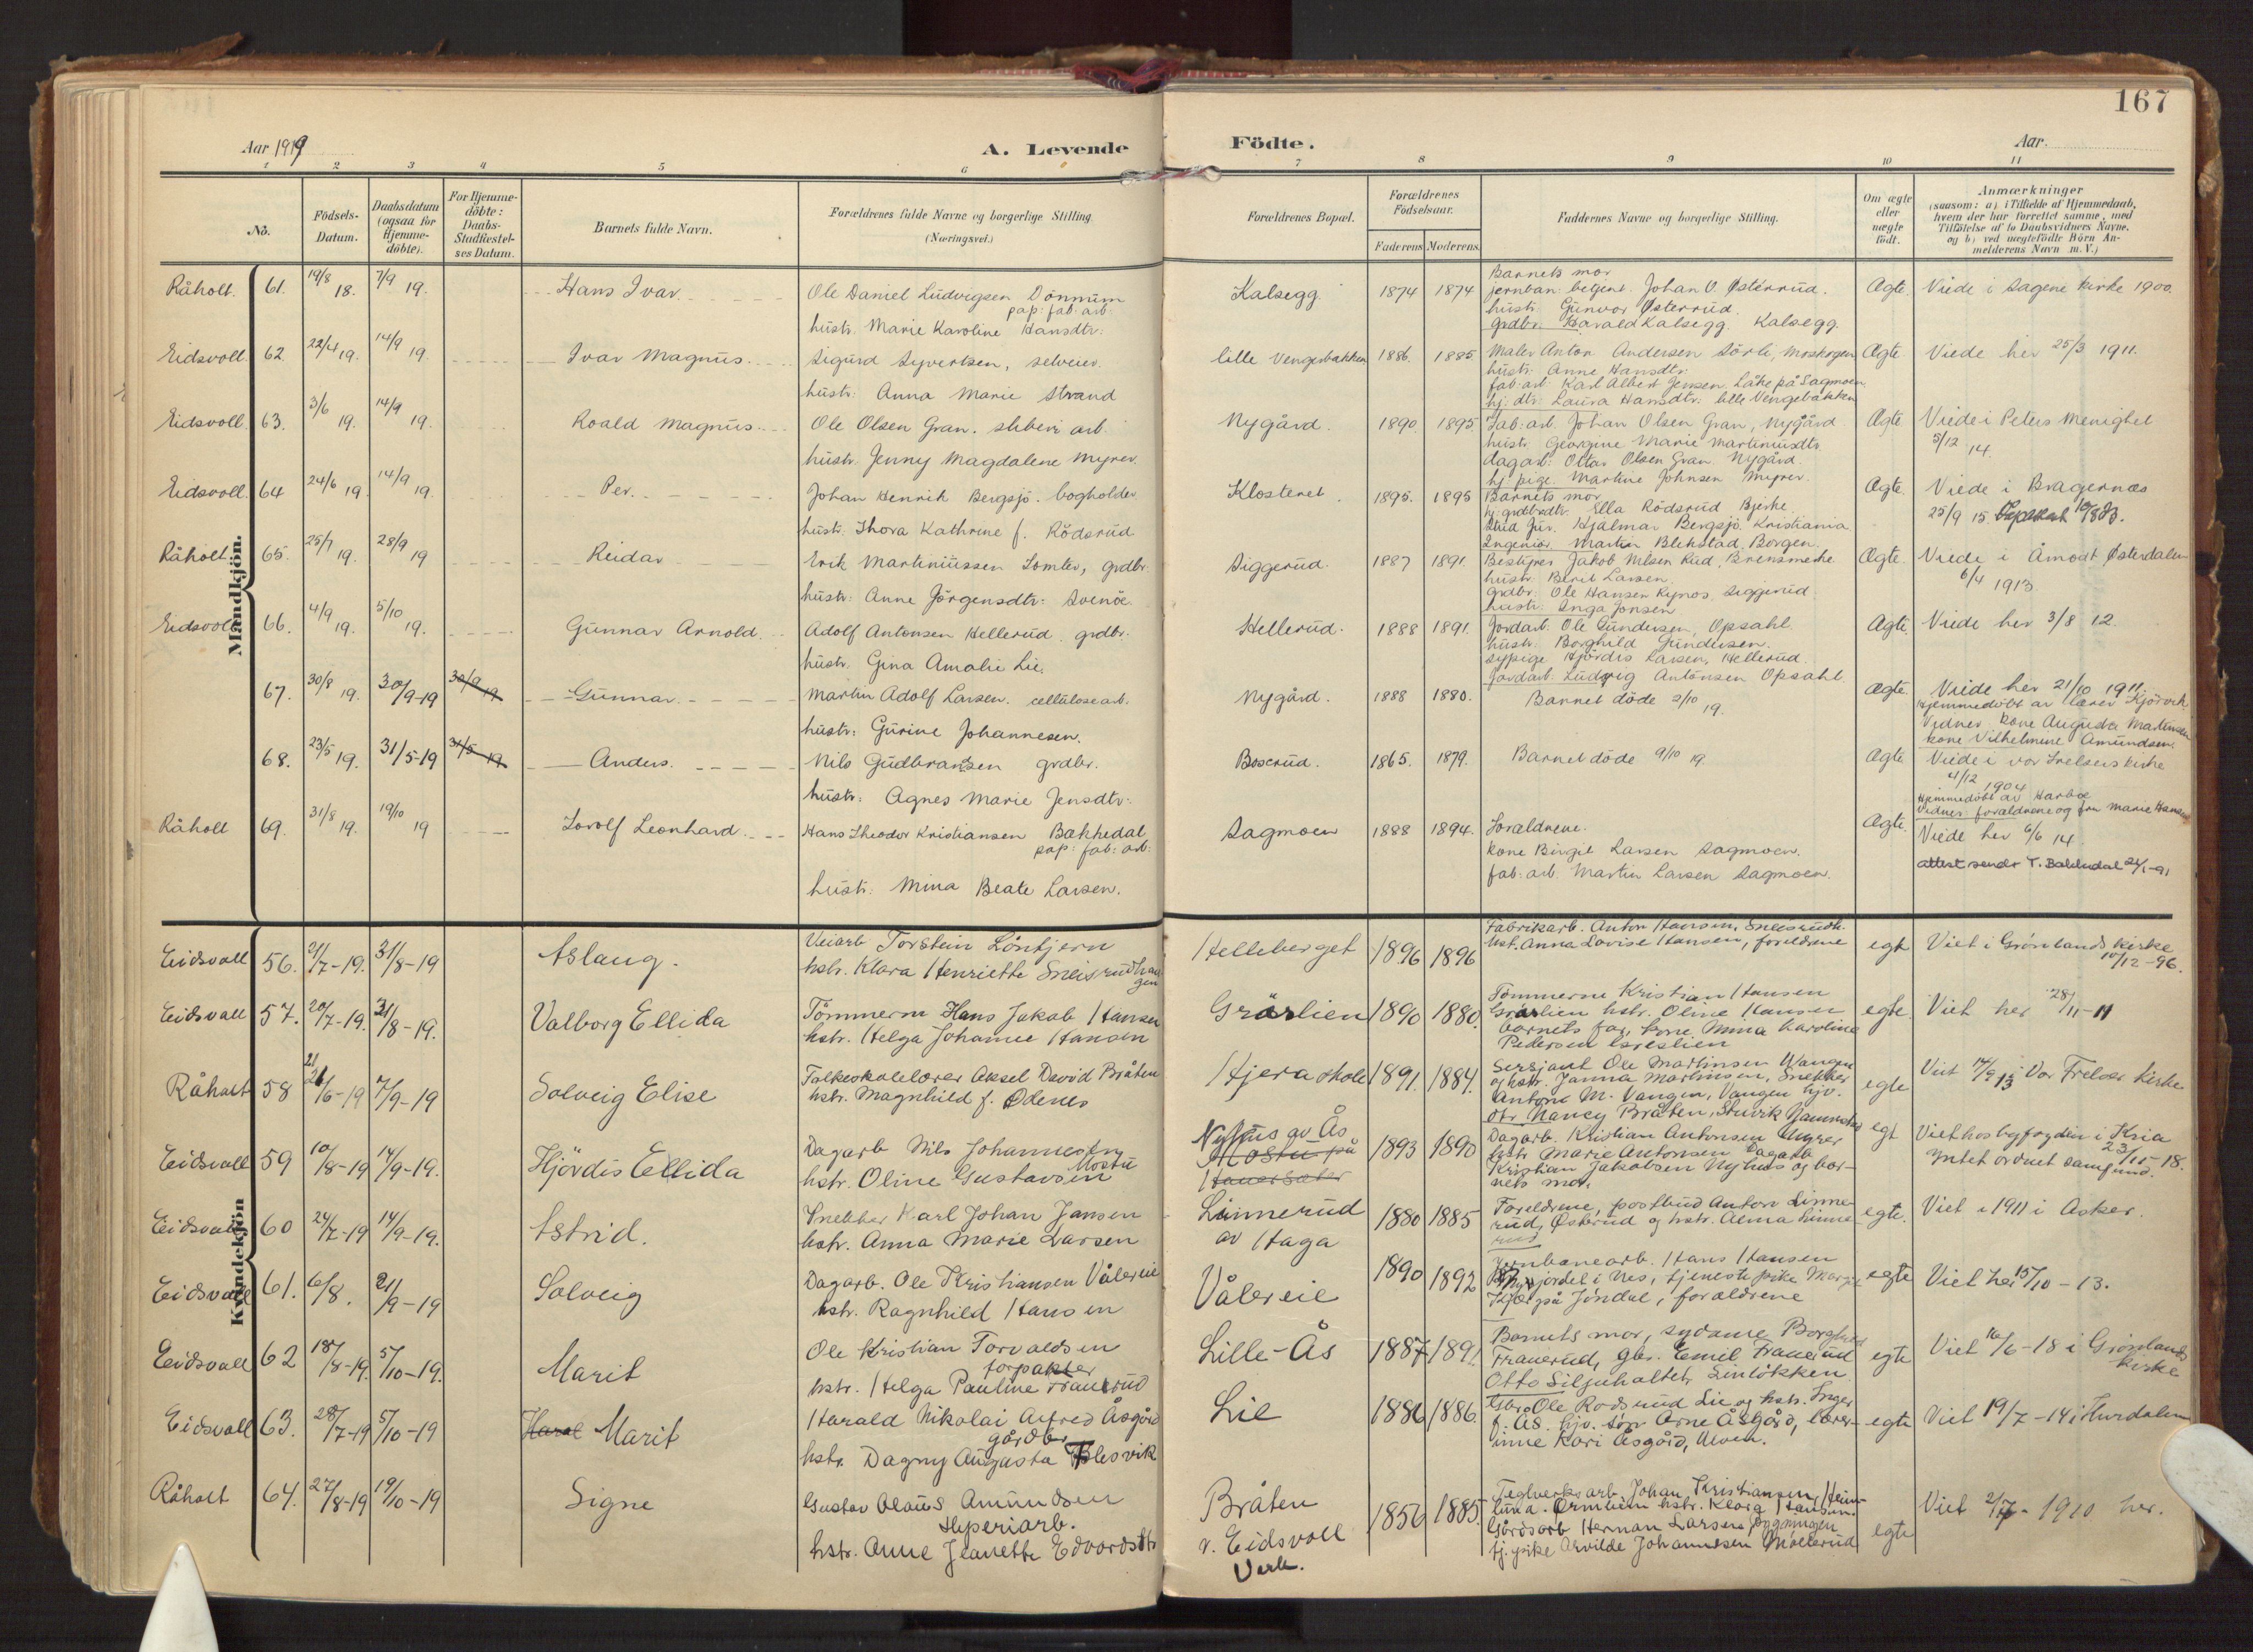 167
Aar 1919
A. Levende
Födte.
Aar.
1 2 3 4 5 6 7 8 9 10 11
No.
Födsels-
Datum.
Daabsdatum
(ogsaa for
Hjemme-
döbte).
For Hjemme-
döbte:
Daabs-
Stadfæstel-
ses Datum.
Barnets fulde Navn.
Forældrenes fulde Navne og borgerlige Stilling.
(Næringsvei.)
Forældrenes Bopæl.
Forældrenes
Födselsaar.
Faderens Moderens.
Faddernes Navne og borgerlige Stilling.
Om ægte
eller
uægte
födt.
Anmærkninger
(saasom: a) i Tilfælde af Hjemmedaab,
hvem der har forrettet samme, med
Tilföielse af to Daabsvidners Navne,
og b) ved uægtefödte Börn An-
melderens Navn m. V.)
Mandkjön.
Råholt. 61. 19/8 18. 7/9 19. Hans Ivar
Ole Daniel Ludvigsen Dönnum
pap: fab: arb:
hustr. Marie Karoline Hansdtr:
Kalsegg 1874 1874
Barnets mor
jernban: betjent. Johan V. Østerrud.
hustr. Gunvor Østerrud.
grdbr. Harald Kalsegg. Kalsegg.
Ægte. Viede i Sagene kirke 1900.
Eidsvoll 62 22/4 19. 14/9 19. Ivar Magnus
Sigurd Syvertsen, selveier.
hustr: Anna Marie Strand
lille Vengerbakken 1886. 1885
Maler Anton Andersen Sörli, Moskogen
hustr: Anne Hansdtr.
fab: arb: Karl Albert Jensen Låke på Sagmoen.
hj: dtr: Laura Hansdtr: lille Vengebakken
Ægte Viede her 25/3 1911.
Eidsvoll 63. 3/6 19. 14/9 19. Roald Magnus
Ole Olsen Gran. sliberi arb.
hustr. Jenny Magdalene Myrer.
Nygård. 1890 1895
Fab: arb. Johan Olsen Gran, Nygård
hustr. Georgine Marie Martinusdtr
dagarb: Ottar Olsen Gran Nygård.
hj. pige. Martine Johnsen Myrer.
Ægte Viede i Peters menighet
5/12 14.
Eidsvoll. 64 24/6 19. 14/9 19. Per.
Johan Henrik Bergsjö. bogholder
hustr. Thora Kathrine f. Rödsrud
Klosteret. 1895. 1895
Barnets mor
hj: grdbrdtr. Ella Rödsrud Bjerke
Stud Jur. Hjalmar Bergsjö Kristiania
Ingeniör Martin Blekstad, Borgen.
Ægte. Viede i Bragernæs
25/9 15.
Råholt. 65. 25/7 19. 28/9 19 Reidar
Erik Martiniussen Lomter, grdbr.
hustr: Anne Jörgensdtr: Svenöe
Siggerud. 1887 1891.
Bestyrer Jakob Nilsen Rud, Brensmoke
hustr: Berit Larsen.
grdbr: Ole Hansen Kynos. Siggerud.
hustr. Inga Jonsen
Ægte. Viede i Åmodt Østerdalen
6/4 1913.
Eidsvoll 66. 4/9 19. 5/10 19. Gunnar Arnold.
Adolf Antonsen Hellerud. grdbr.
hustr. Gina Amalie Lie.
Hellerud. 1888 1891.
Jordarb. Ole Gundersen, Opsahl.
hustr. Borghild Gundersen.
sypige Hjördis Larsen, Hellerud.
Jordarb. Ludvig Antonsen Opsahl.
Ægte. Viede her 3/8 12.
67. 30/8 19. 30/9-19 30/9 19. Gunnar
Martin Adolf Larsen. cellulosearb.
hustr: Gurine Johannesen.
Nygård. 1888 1880. Barnet döde 2/10 19.
Ægte. Viede her 21/10 1911.
Hjemmedöbt av lærer Kjörvik
Vidner Kone Augusta Martinsen
Kone Vilhelmine Amundsen.
68. 23/5 19. 31/5-19 31/5 19. Anders.
Nils Gudbransen grdbr.
hustr: Agnes Marie Jensdtr:
Boserud. 1865. 1879. Barnet döde 9/10 19
Ægte Viede i vor Frelsers kirke
4/12 1904
Hjemmedöbt av Harboe
Vidner: forældrene og fru Marie Hansen
Råholt 69. 31/8 19. 19/10 19 Torolf Leonhard
Hans Theodor Kristiansen Bakkedal
pap: fab: arb:
hustr: Mina Beate Larsen.
Sagmoen 1888 1894. Foraldrene.
Kone Birgit Larsen Sagmoen.
fab: arb. Martin Larsen Sagmoen.
Ægte. Viede her 6/6 14.
attest sendt T. Bakkedal 24/1-91
Kvindekjön
Eidsvall 56. 21/7-19. 31/8-19 Aslaug.
Veiarb Torstein Löntjern
hstr. Klara Henriette Sneisrudhau
gen
Helleberget 1896 1896
Fabrikarb. Anton Hansen, Sneisrudh.
hst. Anna Lovise Hansen, foreldrene
egte Viet i Grønlands kirke
10/12-96.
Eidsvall 57. 20/7-19. 31/8-19. Valborg Ellida
Tömmerm Hans Jakob Hansen
hstr. Helga Johanne Hansen
Gråslien 1890 1880.
Tömmerm Kristian Hansen
Gråslien hstr. Oline Hansen
barnets far, kone Anna Karoline
Pedersen Gråslien
egte. Viet her 28/11-11
Råholt 58 21/6-19 7/9-19 Solveig Elise
Folkeskolelærer Aksel David Bråten
hstr. Magnhild f. Ödenes
Hjera skole 1891. 1884.
Sersjant Ole Martinsen Wangen
og hstr. Janna Martinsen, Snekker
Antoni M. Vangen, Vangen hjv.
dtr. Nancy Bråten,
egte Viet 17/9 13 i Vor Frelser kirke
Eidsvall 59 10/8-19 14/9-19. Hjördis Ellida
Dagarb Nils Johannesen
Mostu
hstr. Oline Gustavsen
Nyhus av Ås
Mostu på
Hauersæter 1893 1890
Dagarb. Kristian Antonsen Myrer
hstr Marie Antonsen Dagarb
Kristian Jakobsen Nyhus og bar-
nets mor.
egt Viet hos byfogden i Kria
23/11-18.
Intet ordnet samfund.
Eidsvall 60 24/7-19 14/9-19. Astrid.
Snekker Karl Johan Jansen
hstr. Anna Marie Larsen
Linnerud
av Haga 1880 1885
Foreldrene, postbud Anton Linne-
rud, Østerud og hstr. Alma Linne-
rud
egte. Viet i 1911 i Asker.
Eidsvall 61. 6/8. 21/9-19 Solveig
Dagarb. Ole Kristiansen Vålereie
hstr. Ragnhild Hansen
Vålereie 1890 1892
Jernbanearb. Hans Hansen
i Nes, tjenestepike Margit
Kjær på Jöndal, foraldrene
egte Viet her 15/10-13.
Eidsvall 62 18/8-19. 5/10-19. Marit
Ole Kristian Torvaldsen
forpakter
hstr. Helga Pauline Franerud
Lille-Ås 1887 1891
Barnets mor, sydame Borghild
Franerud, gbr. Emil Franerud
Otto Siljuholtet, Sinlökken
egte Viet 16/6-18 i Grönlands
kirke
Eidsvall 63. 28/7-19 5/10-19 Marit
Harald Nikolai Alfred Åsgård
gårdbr
hstr. Dagny Augusta Blesvik
Lie 1886 1886.
Gbr. Ole Rodsrud Lie og hstr. Inger
f. Ås. hjv. sön Arne Åsgård, lærer-
inne Kari Åsgård, Ulven.
egte Viet 19/7-14 i Hurdalen
Råholt 64. 27/8-19 19/10-19 Signe
Gustav Olaus Amundsen
Sliperiarb.
hstr. Anne Jeanette Edvardsdtr
Bråten
v. Eidsvoll
Verk. 1856 1885.
Teglverksarb. Johan Kristiansen,
hstr. Klara Hansen.
Gårdsarb Herman Larsen Bygningen
tj. pike Arvilde Johannesen Mollerud
egte Viet 2/7-1910 her.